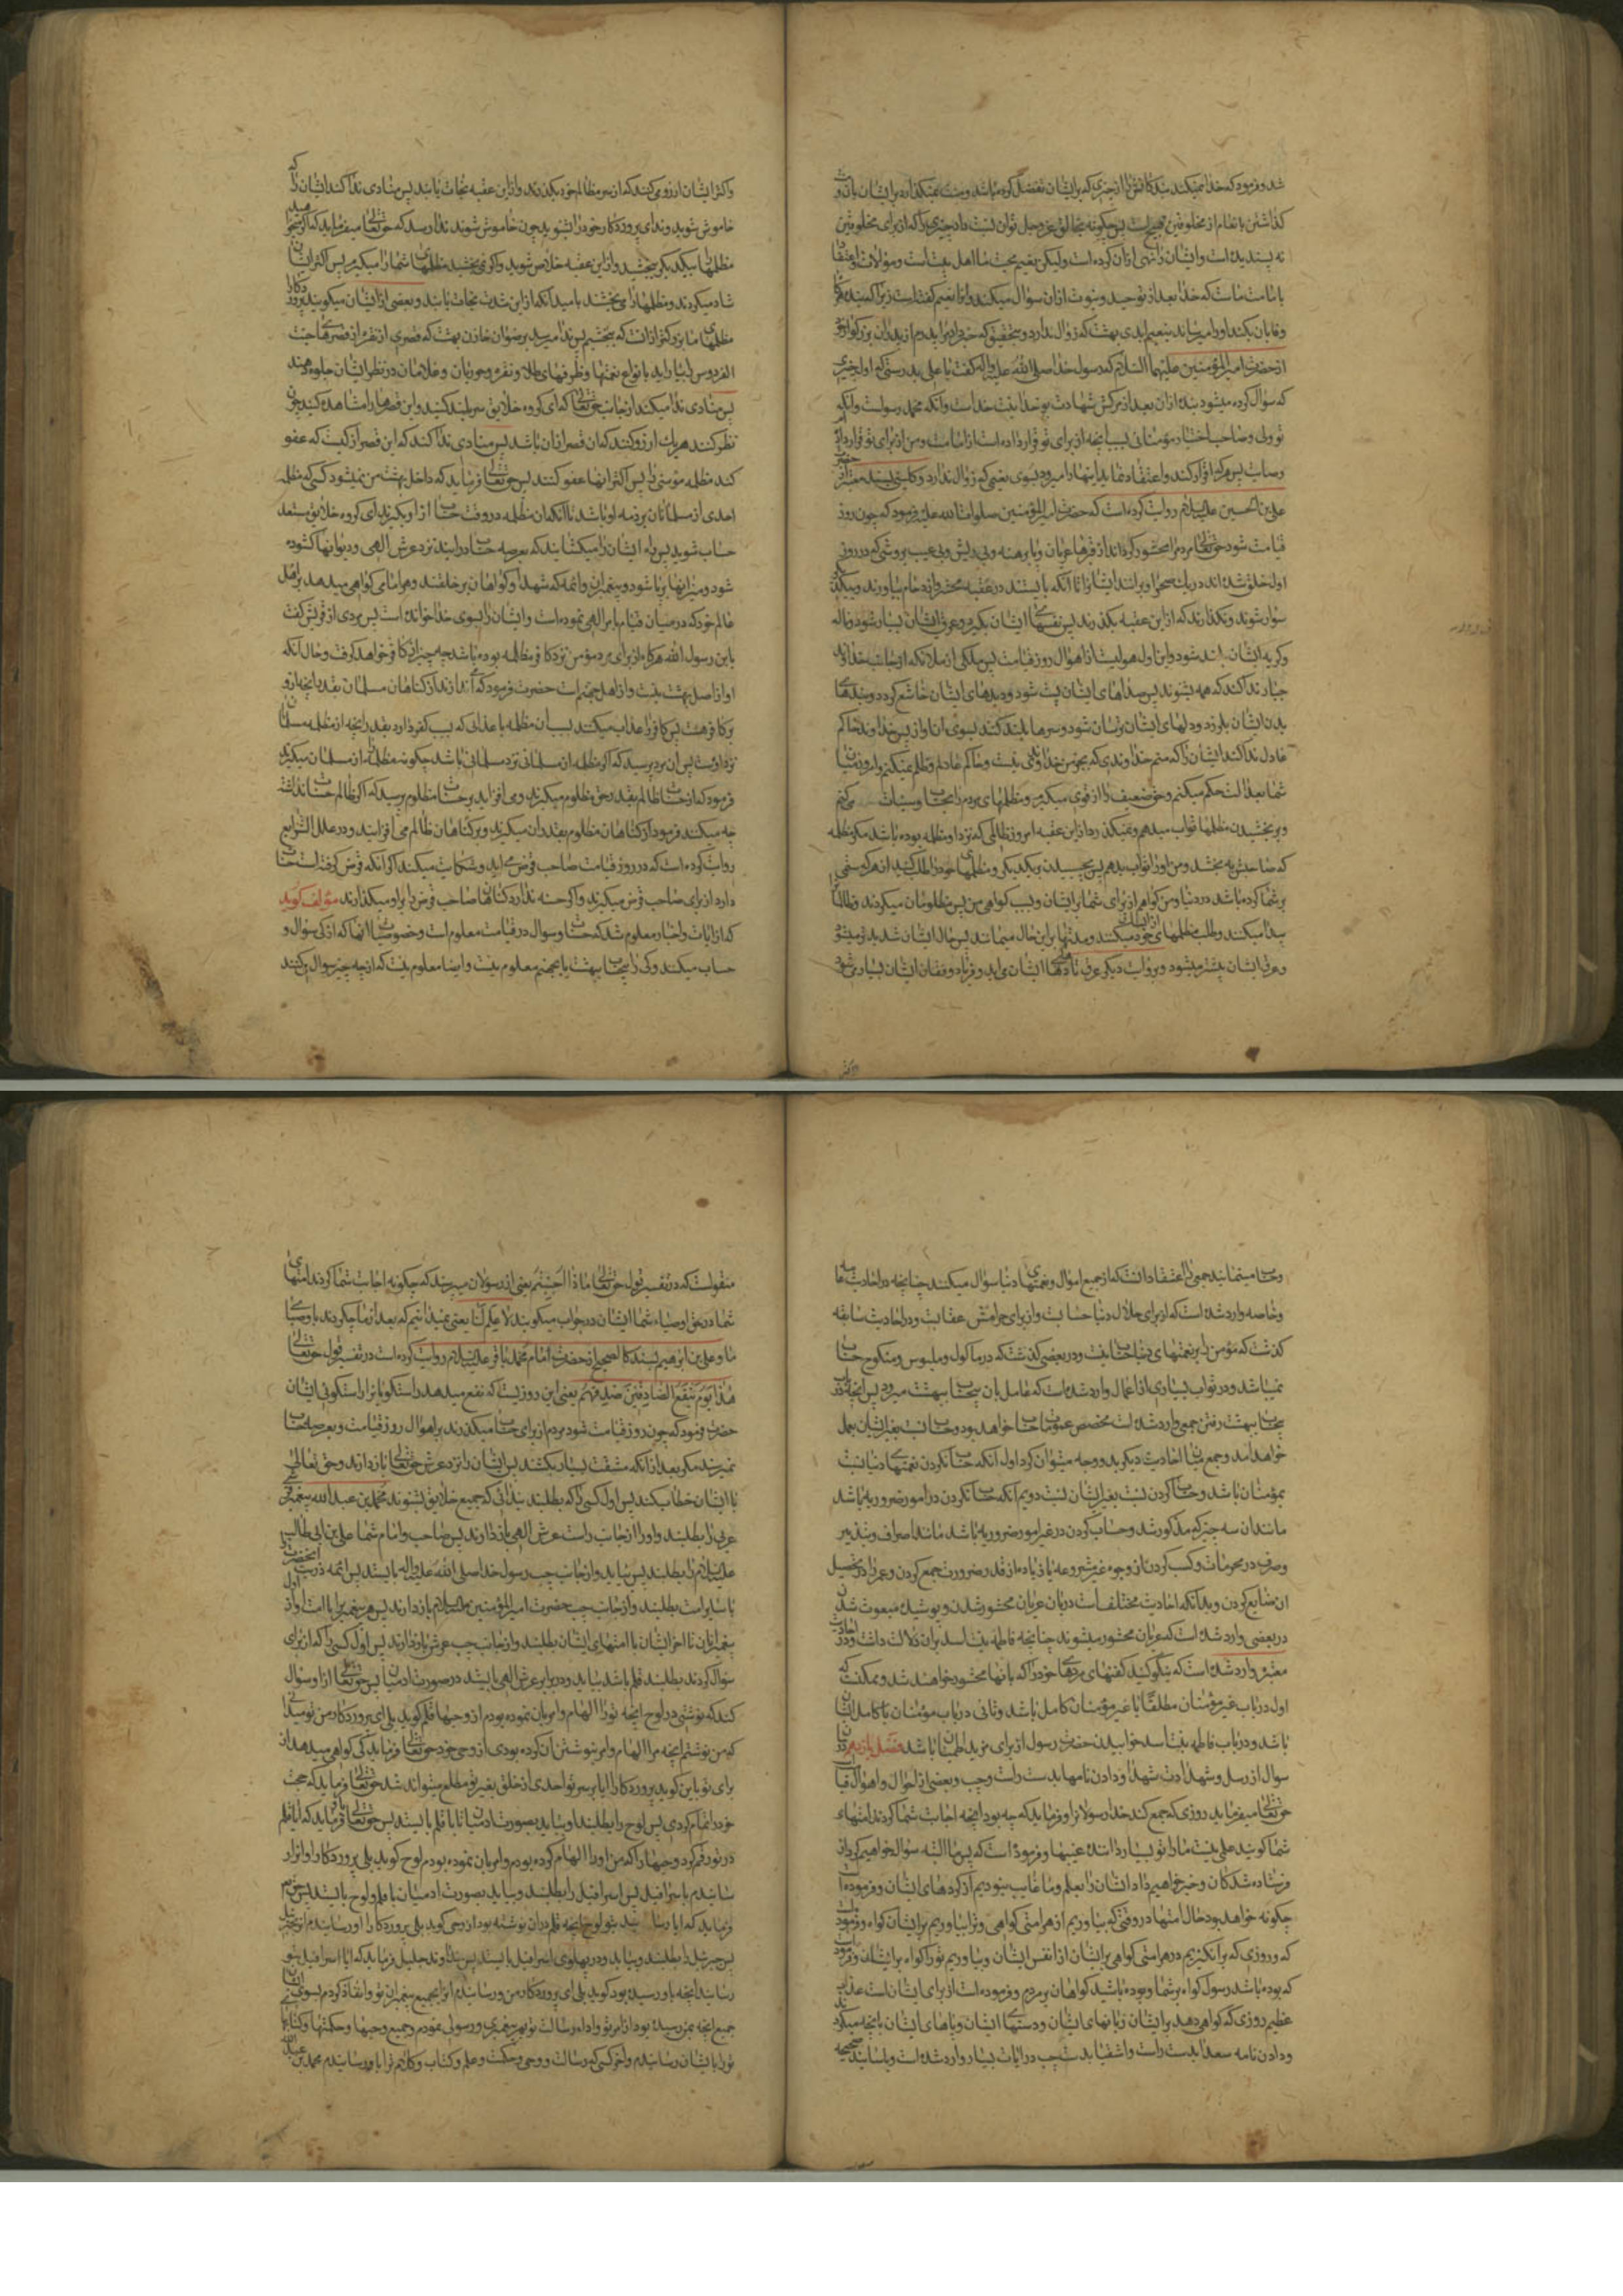 شد و فرمود که خدا نمیکند بندکانش را از چیزی که برایشان تفضل کرده باشد و منت نمیکذارد بر ایشان بآن و منت
کذاشتن بانعام از مخلوقین قبیح است پس چکونه بخالق عز و جل توان نسبت داد چیزی را که از برای مخلوقین
نه پسندیده است و ایشان را نهی از آن کرده است و لیکن نعیم محبت ما اهل بیت است و موالات و اعتقاد
بامامت ماست که خدا بعد از توحید و نبوت از آن سؤال میکند و این نعیم کفته است زیرا که بنده هرکاه
وفا بان بکند او را میرساند بنعیم ابدی بهشت که زوال ندارد و بتحقیق که خبر داد مرا پدرم از پدران بزرکوار خود
از حضرت امیر المؤمنین علیهما السلام که رسول خدا صلی الله علیه و اله کفت یا علی بدرستی که اول چیزی
که سؤال کرده میشود بنده از آن بعد از مرکش شهادت بوحدانیت خداست و آنکه محمد رسول است و آنکه
تو ولی و صاحب اختیار مؤمنانی بسبب آنچه از برای تو قرار داده است از امامت و من از برای تو قرار دادم
پس هر که اقرار کند و اعتقاد نماید اینها را میرود بسوی نعیمی که زوال ندارد و کلینی بسند معتبر از حضرت
علی بن الحسین علیه السلام روایت کرده است که حضرت امیر المؤمنین صلوات الله علیه فرمود که چون روز
قیامت شود حق تعالی مردم را محشور کرداند از قبرها عریان و پا برهنه و بی ریش و بی عیب بروشی که در روز
اول خلق شده اند در یک صحرا و برانند ایشان را تا آنکه بایستند در عقبه محشر و ازدحام بیاورند و بیکدیکر
سوار شوند و نکذارند که از این عقبه بکذرند پس نفسهای ایشان بکیرد و عرق ایشان بسیار شود و ناله
و کریه ایشان بلند شود و این اول هولیست از اهوال روز قیامت پس ملکی از ملائکه از جانب خداوند
جبار ندا کند که همه بشنوند پس صداهای ایشان پست شود و دیدهای ایشان خاشع کردد و بندهای
بدن ایشان بلرزد و دلهای ایشان ترسان شود و سرها بلند کنند بسوی آن آواز پس خداوند حاکم
عادل ندا کند ایشان را که منم خداوندی که بجز من خداوندی نیست و حاکم عادلم و ظلم نمیکنم و امروز میان
شما بعدالت حکم میکنم و حق ضعیف را از قوی میکیرم و مظلمهای مردم را بحسنات و سیئات می کنم
و بر بخشیدن مظلمها ثواب میدهم و نمیکذرد از این عقبه امروز ظالمی که نزد او مظلمه بوده باشد مکر مظلمه
که صاحبش به بخشد و من او را ثواب بدهم پس بچسبید بیکدیکر و مظلمهای خود را طلب کنید از هر که ستمی
بر شما کرده باشد در دنیا و من کواهم از برای شما بر ایشان و بس است کواهی من پس مظلومان میکردند و ظالمان را
پیدا میکنند و طلب مظلمهای خود از ایشان میکنند و مدتها براین حال میمانند پس حال ایشان شدید تر میشود
و عرق ایشان بیشتر میشود و بروایت دیکر عرق تا دهنهای ایشان می اید و فریاد و فغان ایشان بسیار می شود
و اکثر ایشان ارزو می کنند که از سر مظالم خود بکذرند و از این عقبه نجات یابند پس منادی ندا کند ایشان را که
خاموش شوید و ندای پروردکار خود را بشنوید چون خاموش شوند ندا رسد که حق تعالی میفرماید که اکر میخواهید
مظلمها را بیکدیکر ببخشید و از این عقبه خلاص شوید و اکر نمی بخشید مظلمهای شما را میکیرم پس اکثر ایشان
شاد میکردند و مظلمها را می بخشند بامید آنکه از این شدت نجات یابند و بعضی از ایشان میکویند پروردکارا
مظلمهای ما بزرکتر از آنست که ببخشیم پس ندا میرسد برضوان خازن بهشت که قصری از نقره از قصرهای جنت
الفردوس را بیاراید با انواع نعمتها و ظرفهای طلا و نقره و حوریان و غلامان در نظر ایشان جلوه دهند
پس منادی ندا میکند از جانب حق تعالی که ای کروه خلایق سر بلند کنید و این قصرها را مشاهده کنید چون
نظر کنند هر یک ارزو کنند که آن قصر از آن باشد پس منادی ندا کند که این قصر از کیست که عفو
کند مظلمه مؤمنی را پس اکثر آنها عفو کنند پس حق تعالی فرماید که داخل بهشت من نمیشود کسی که مظلمه
احدی از مسلمانان بر ذمه او باشد تا آنکه آن مظلمه در وقت حساب از او بکیرند ای کروه خلایق مستعد
حساب شوید پس راه ایشان را میکشایند که بعرصه حساب درایند نزد عرش الهی و دیوانها کشوده
شود و میزانها بر پا شود و پیغمبران و ائمه که شهدا و کواهان بر خلقند و هر امامی کواهی میدهد بر اهل
عالم خود که در میان قیام بامر الهی نموده است و ایشان را بسوی خدا خوانده است پس مردی از قریش کفت
یا بن رسول الله هرکاه از برای مرد مؤمن نزد کافر مظلمه بوده باشد چه چیز از کافر خواهد کرفت و حال آنکه
او از اهل بهشت نیست و از اهل جهنم است حضرت فرمود که می اندازند از کناهان مسلمان بقدر آنچه از او
بر کافر هست پس کافر را عذاب میکنند بسبب آن مظلمه با عذابی که بسبب کفر دارد بقدر آنچه از مظلمه مسلمان
نزد اوست پس آن مرد پرسید که اکر مظلمه از مسلمانی نزد مسلمانی باشد چکونه مظلمه را از مسلمان میکیرند
فرمود که از حسنات ظالم بقدر حق مظلوم میکیرند و می افزایند بر حسنات مظلوم پرسید که اکر ظالم حسنات نداشته
چه میکنند فرمود از کناهان مظلوم بقدر آن میکیرند و بر کناهان ظالم می افزایند و در علل الشرایع
روایت کرده است که در روز قیامت صاحب قرض می اید و شکایت میکند اکر آنکه قرض کرفته است حسنات
دارد از برای صاحب قرض میکیرند و اکر حسنه ندارد کناهان صاحب قرض را بر او میکذارند مؤلف کوید
که از ایات و اخبار معلوم شد که حساب و سوال در قیامت معلوم است و خصوصیات آنها که از کی سؤال و
حساب میکنند و کی را بیحساب ببهشت یا بجهنم معلوم نیست و ایضا معلوم نیست که از چه چیز سوال می کنند
و حساب مینمایند جمعی را اعتقاد آنست که از جمیع اموال و نعمتهای دنیا سؤال میکنند چنانچه در احادیث عامه
و خاصه وارد شده است که از برای حلال دنیا حسابست و از برای حرامش عقابست و در احادیث سابقه
کذشت که مؤمن را بر نعمتهای دنیا حساب نیست و در بعضی کذشت که در ماکول و ملبوس و منکوح حساب
نمیباشد و در ثواب بسیاری از اعمال وارد شده است که عامل بان بیحساب ببهشت میرود پس آنچه در
بیحساب ببهشت رفتن جمعی وارد شده است مخصص عمومات حساب خواهد بود و حساب نسبت بغیر ایشان بعمل
خواهد آمد و جمع میان احادیث دیکر بدو وجه میتوان کرد اول آنکه حساب نکردن نعمتهای دنیا نسبت
بمؤمنان باشد و حساب کردن نسبت بغیر ایشان دویم آنکه حساب نکردن در امور ضروریه باشد
مانند آن سه چیز که مذکور شد و حساب کردن در غیر امور ضروریه باشد مانند اصراف و تبذیر
و صرف در محرمات و کسب کردن از وجوه غیر مشروعه یا زیاده از قدر ضرورت جمع کردن و عمر را در تحصیل
آن ضایع کردن و بدانکه احادیث مختلف است در باب عریان محشور شدن و پوشیده مبعوث شدن
در بعضی وارد شده است که عریان محشور میشوند چنانچه فاطمه بنت اسد بران دلالت داشت و در احادیث
معتبره وارد شده است که نیکو کنید کفنهای مردهای خود را که بانها محشور خواهند شد و ممکنست که
اول در باب غیر مؤمنان مطلقا یا غیر مؤمنان کامل باشد و ثانی در باب مؤمنان یا کامل ایشان
باشد و در باب فاطمه بنت اسد خوابیدن حضرت رسول از برای مزید اطمینان باشد فصل یازدهم در
سوال از رسل و شهادت شهدا و دادن نامها بدست راست و چپ و بعضی از احوال و اهوال قیامت
حق تعالی میفرماید روزی که جمع کند خدا رسولانرا و فرماید که چه بود آنچه اجابت شما کردند امتهای
شما کویند علمی نیست ما را تو بسیار دانندهٔ غیبها و فرموده است که پس ما البته سؤال خواهیم کرد از
فرستاده شدکان و خبر خواهیم داد ایشان را بعلم و ما غایب نبودیم از کردهای ایشان و فرموده است
چکونه خواهد بود حال امتها در وقتی که بیاوریم از هر امتی کواهی و ترا بیاوریم بر ایشان کواه و فرموده است
که و روزی که برانکیزیم در هر امتی کواهی بر ایشان از انفس ایشان و بیاوریم تو را کواه بر ایشان و فرمود
که بوده باشد رسول کواه بر شما و بوده باشید کواهان بر مردم و فرموده است از برای ایشان است عذابی
عظیم روزی که کواهی دهد بر ایشان زبانهای ایشان و دستهای ایشان و پاهای ایشان بانچه میکردند
و دادن نامه سعدا بدست راست و اشقیا بدست چپ در ایات بسیار وارد شده است و باسانید صحیحه
منقولست که در تفسیر قول حق تعالی ماذا اجبتم یعنی از رسولان میپرسند که چکونه اجابت شما کردند امتهای
شما در حق اوصیاء شما ایشان در جواب میکویند لا علم لنا یعنی نمیدانیم که بعد از ما چکردند با اوصیای
ما و علی بن ابرهیم بسند کالصحیح از حضرت امام محمد باقر علیه السلام روایت کرده است در تفسیر قول حق تعالی
هذا یوم ینفع الصادقین صدقهم یعنی این روزیست که نفع میدهد راستکویانرا راستکوئی ایشان
حضرت فرمود که چون روز قیامت شود مردم از برای حساب میکذرند بر اهوال روز قیامت و بعرصه حساب
نمیرسند مکر بعد از آنکه مشقت بسیار بکشند پس ایشان را نزد عرش حق تعالی باز دارند و حق تعالی
با ایشان خطاب کند پس اول کسی را که بطلبند بندائی که جمیع خلایق بشنوند محمد بن عبد الله پیغمبر قرشی
عربی را بطلبند و او را از جانب راست عرش الهی باز دارند پس صاحب و امام شما علی بن ابی طالب
علیه السلام را بطلبند پس بیاید و از جانب چپ رسول خدا صلی الله علیه و اله بایستد پس ائمه ذریت آنحضرت را
با سایر امت بطلبند و از جانب چپ حضرت امیر المؤمنین علیه السلام باز دارند پس هر پیغمبر را با امت او از اول
پیغمبران تا اخر ایشان با امتهای ایشان بطلبند و از جانب چپ عرش باز دارند پس اول کسی را که از برای
سؤال کردن بطلبند قلم باشد بیاید و در برابر عرش الهی بایستد در صورت آدمیان پس حق تعالی از او سؤال
کند که نوشتی در لوح آنچه تو را الهام و امر بآن نموده بودم از وحیها قلم کوید بلی ای پروردکار من تو میدانی
که من نوشتم آنچه مرا الهام و امر بنوشتن آن کرده بودی از وحی خود حق تعالی فرماید که کی کواهی میدهد از
برای تو باین کوید پروردکارا ایا بر سر تو احدی از خلق بغیر تو مطلع میتواند شد حق تعالی فرماید که حجت
خود را تمام کردی پس لوح را بطلبند و بیاید بصورت آدمیان تا با قلم بایستد پس حق تعالی باو فرماید که ایا قلم
در تو رقم کرد وحیها را که من او را الهام کرده بودم و امر بآن نموده بودم لوح کوید بلی پروردکارا و آنرا
رسانیدم باسرافیل پس اسرافیل را بطلبند و بیاید بصورت آدمیان با قلم و لوح بایستد پس حق تعالی
فرماید که ایا رسانید بتو لوح آنچه قلم در آن نوشته بود از وحی کوید بلی پروردکارا و رسانیدم آنرا بجبرئیل
پس جبرئیل را بطلبند و بیاید و در پهلوی اسرافیل بایستد پس خداوند جلیل فرماید که ایا اسرافیل بتو
رسانید آنچه باو رسیده بود کوید بلی ای پروردکار من و رسانیدم آنرا بجمیع پیغمبران تو و انفاذ کردم بسوی ایشان
جمیع آنچه بمن رسیده بود از امر تو و اداء رسالت تو بهر پیغمبری و رسولی نمودم و جمیع وحیها و حکمتها و کتابهای
تو را بایشان رسانیدم و اخر کسی که رسالت و وحی و حکمت و علم و کتاب و کلام ترا باو رسانیدم محمد بن عبد الله